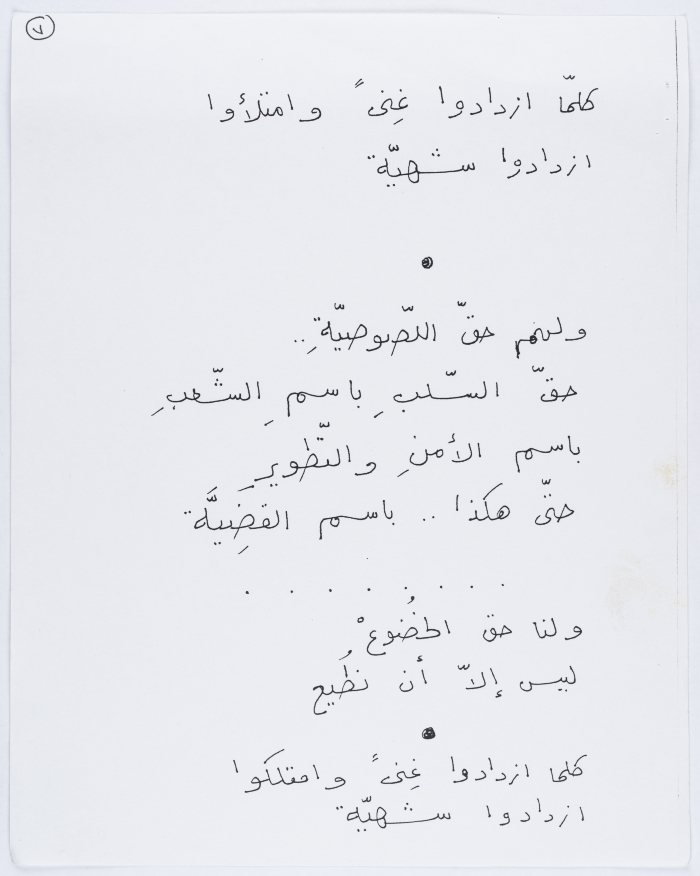 ٧
كلّما ازدادوا غِنىً وامتلأوا
ازدادوا شهيّة
ولهم حقّ اللّصوصيّةِ..
حقّ السّلبِ باسمِ الشّعبِ
باسم الأمنِ والتّطويرِ
حتّى هكذا .. باسم القضِيَّة
. . . . . . . .
ولنا حق الخُضوعْ
ليس إلاّ أن نطُيع
كلما ازدادوا غِنىً وامتلكوا
ازدادوا شهيّة